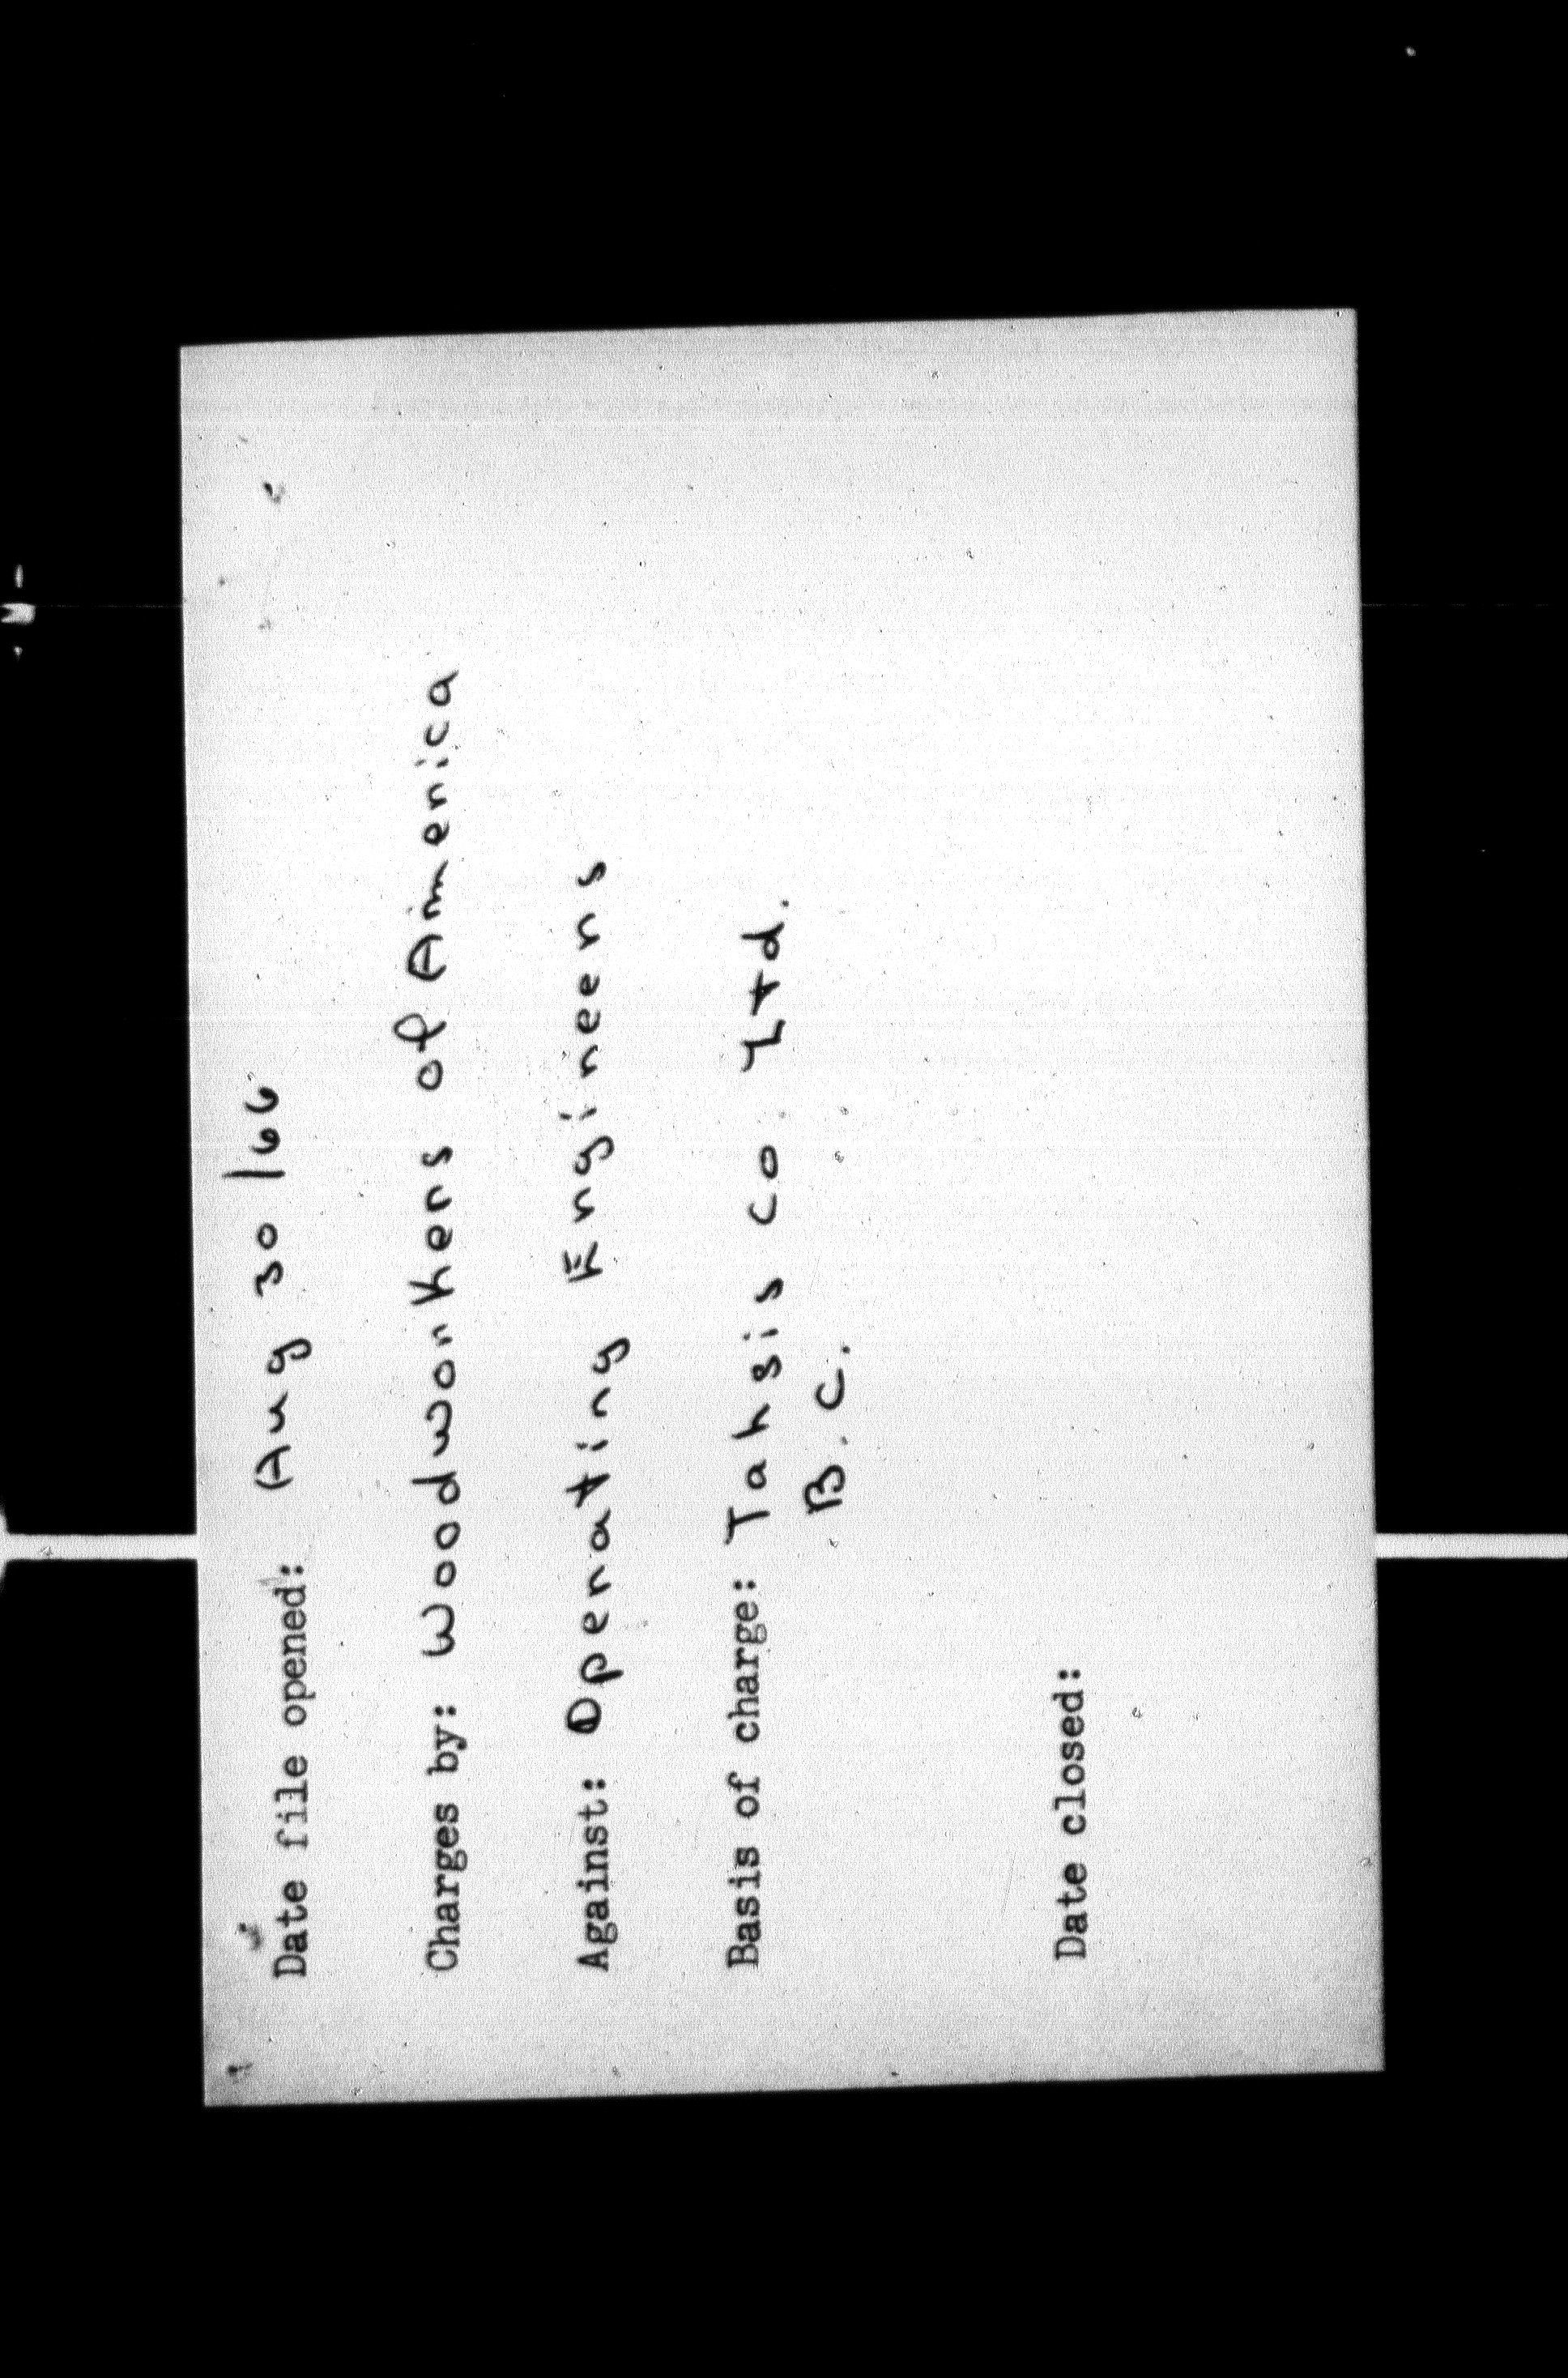 Date file opened: Aug 30/66
Charges by: Woodworkers of America
Against: Operating Engineers
Basis of charge: Tahsis Co. Ltd.
B.C.
Date closed: